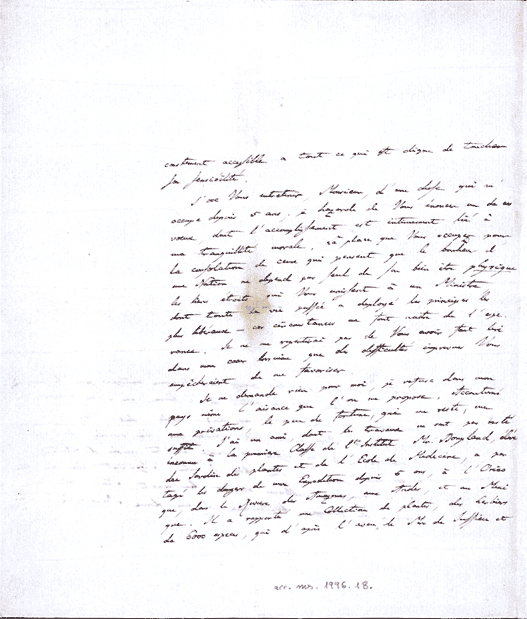 constamment accessible a tout ce qui est digne de toucher
Sa sensibilité.
J'ose Vous entretenir, Monsieur, d'une chose qui m'
occupe depuis 5 ans; je hazarde de Vous énoncer un de ces
voeux dont l'accomplissement est intimement lié à
ma tranquillité morale. La place que Vous occupez pour
la consolation de ceux qui pensent que le bonheur d'
une Nation ne dépend pas seul de son bien être physique
les liens étroits qui Vous unissent à un Ministre
dont toute la vie passée a deployé les principes les
plus libéraux - ces circonstances me font naitre de l'espe-
rance. Je ne me repentirai pas de Vous avoir fait lire
dans mon coeur lorsque des difficultés imprevues Vous
empêcheraient de me favoriser.
Je ne demande rien pour moi, je refuse dans mon
pays même l'aisance que l'on me propose. Accoutumé
aux privations, le peu de fortune, qui me reste, me
suffit. J'ai un ami dont les travaux ne sont pas restés
inconnus à la première Classe de l'Institut Mr Bonpland, élève
du Jardin des plantes et de l'Ecole de Médecine, a par-
tagé les dangers de mon Expedition depuis 5 ans, à l'Orino
que, dans la des Amazones, aux Andes et au Mexi
que. Il a rapporté une Collection de plantes, des herbiers
de 6000 especes, qui d'après l'aveu de Mr de Jussieu et
acc. ms. 1996. 18.